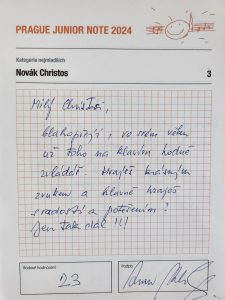 PRAGUE JUNIOR NOTE 2024
Kategorie nejmladších
Novák Christos 3
Milý Christosi,
blahopřeji, ve svém věku
už toho na klavír hodně
zvládáš. Hraješ krásným
zvukem a hlavně hraješ
s radostí a potěšením!
Jen tak dál !!!
Bodové hodnocení Podpis
23